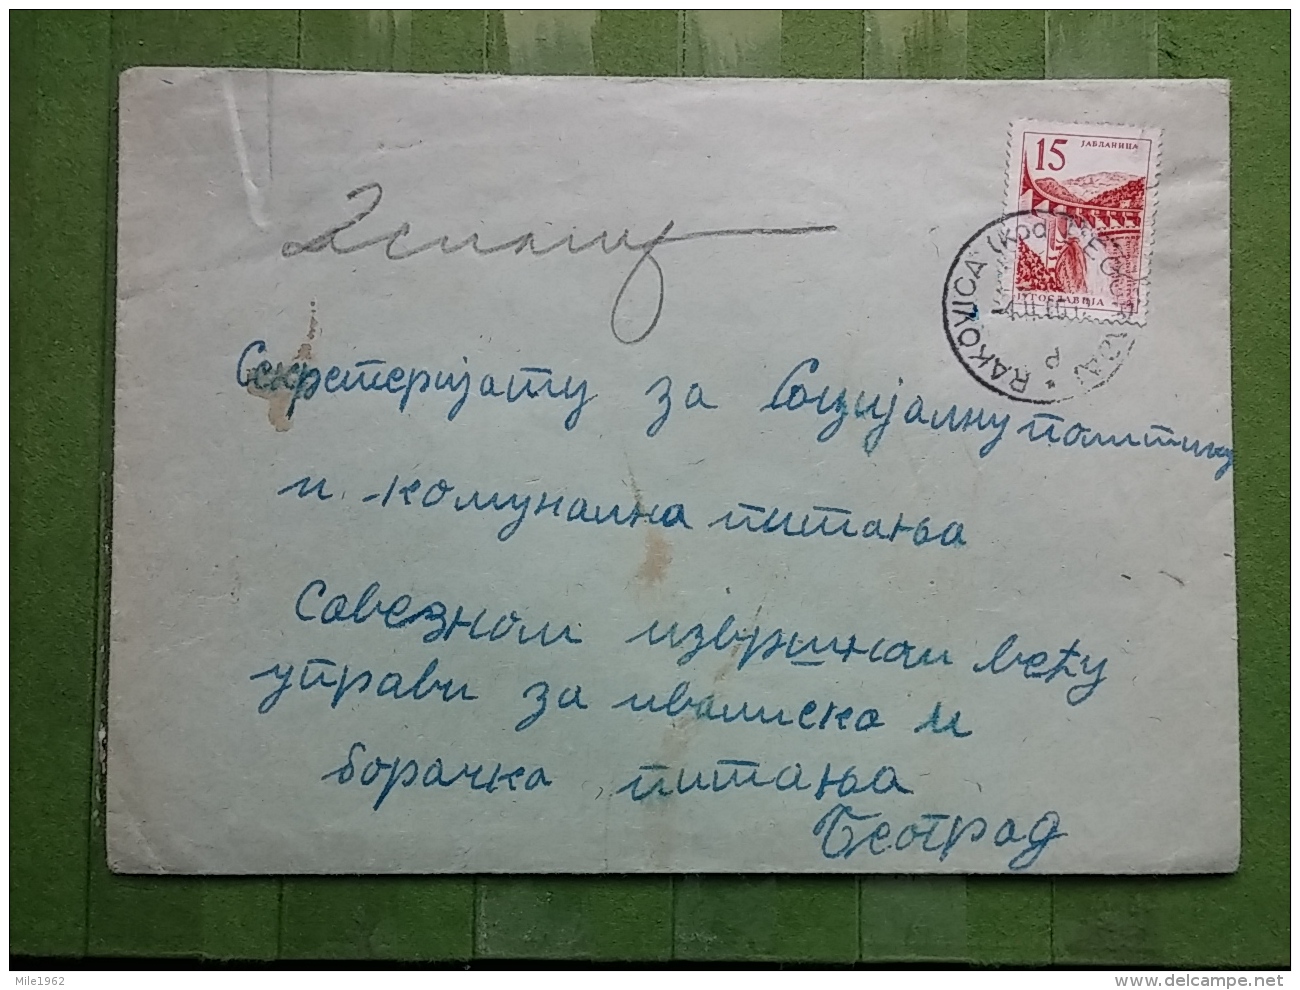 15 ЈАБЛАНИЦА
ЈУГОСЛАВИЈА
RAKOVICA (KOD BEOGRADA)
Секретеријату за Социјалну политику
и комунална питања
Савезном извршном већу
управи за ивалиска и
борачка питања
Београд
Mile1962
www.delcampe.net